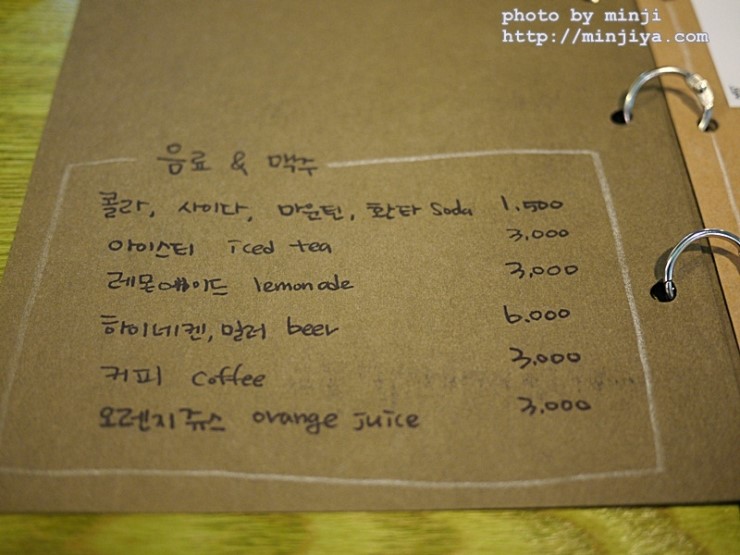 photo by minji
http://minjiya.com
음료 & 맥주
콜라, 사이다, 마운틴, 환타 Soda 1.500
아이스티 iced tea 3,000
레몬에이드 lemonade 3,000
하이네켄, 밀러 beer 6.000
커피 coffee 3,000
오렌지쥬스 orange juice 3,000